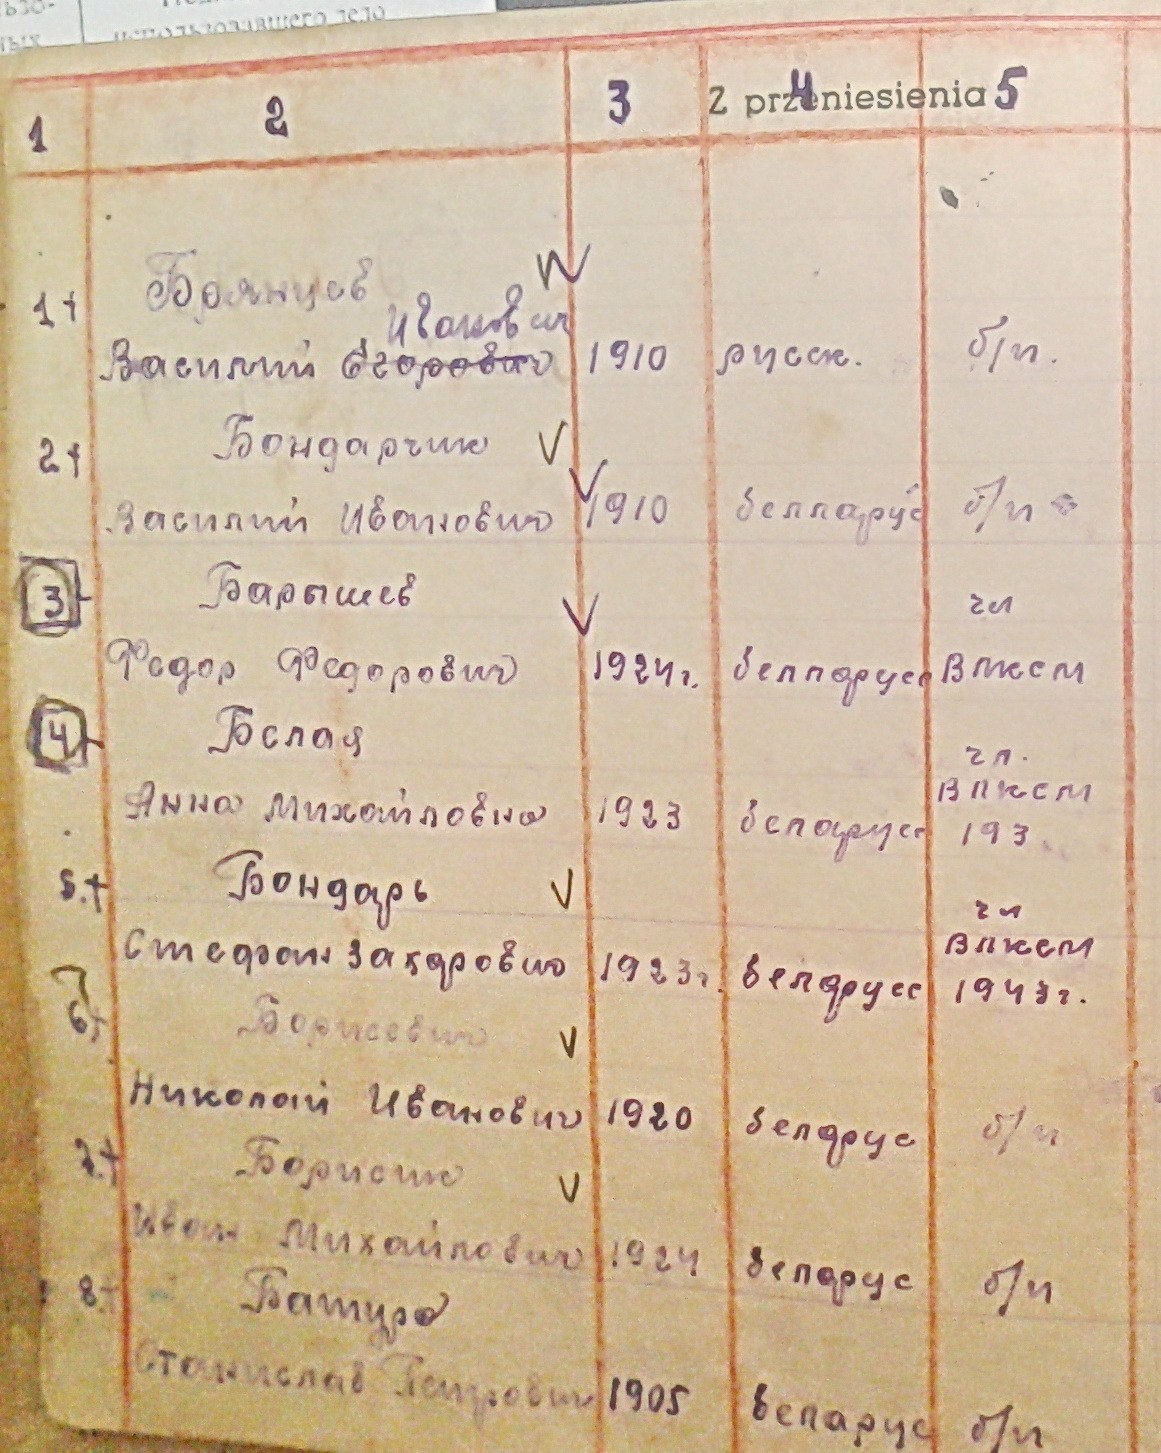 использовавшего дело
1 2 3 4 5
Z przeniesienia
Брянцев
Иванович
1+ Василий Егорович 1910 русск. б/п.
2+ Бондарчик
Василий Иванович 1910 белларус б/п
3 Барышев чл
Федор Федорович 1924г. белларусс ВЛКСМ
4 Белая чл.
ВЛКСМ
Анна Михайловна 1923 беларусс 193
5.+ Бондарь чл
ВЛКСМ
Стефан Захарович 1923г. беларусс 1943г.
6+ Борисевич
Николай Иванович 1920 беларус б/п
7.+ Борисик
Иван Михайлович 1924 беларус б/п
8.+ Батура
Станислав Петрович 1905 беларус б/п